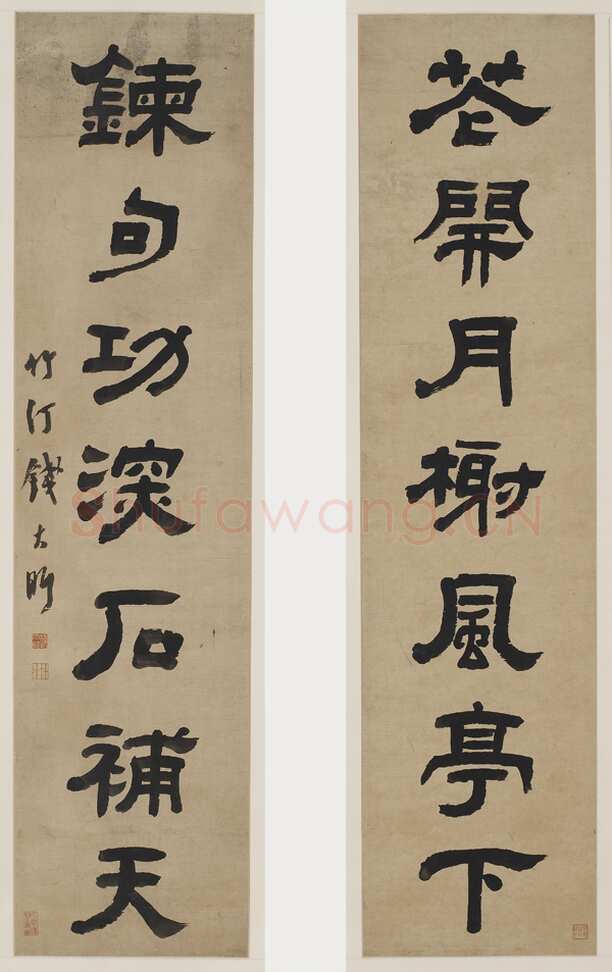 花開月榭風亭下
鍊句功深石補天
竹汀錢大昕
Shufawang.CN